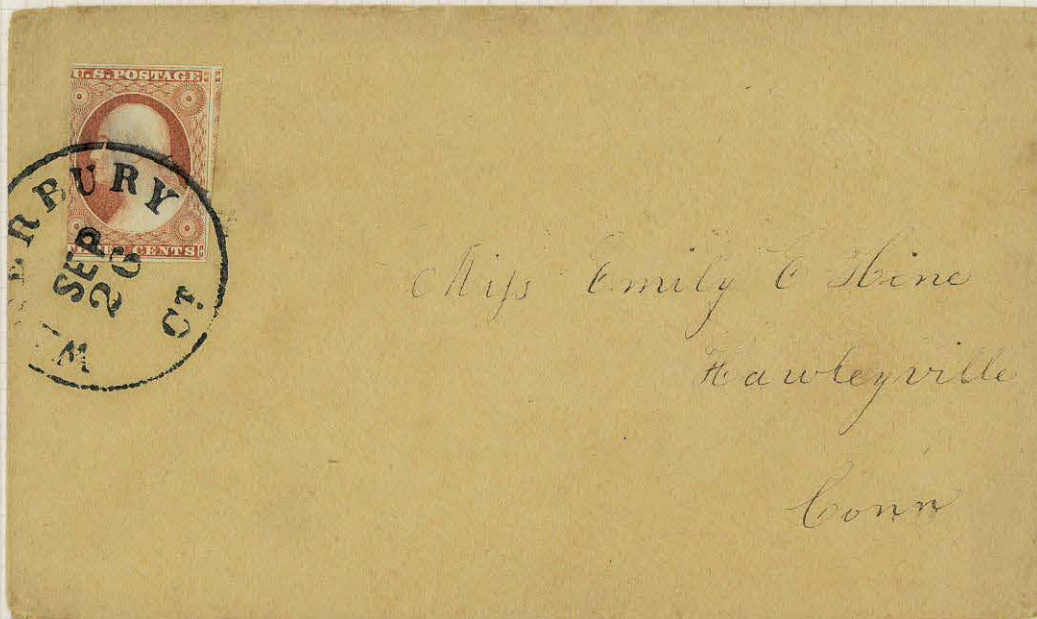 U.S. POSTAGE
THREE CENTS
WATERBURY CT
SEP
26
Miſs Emily C Hine
Hawleyville
Conn